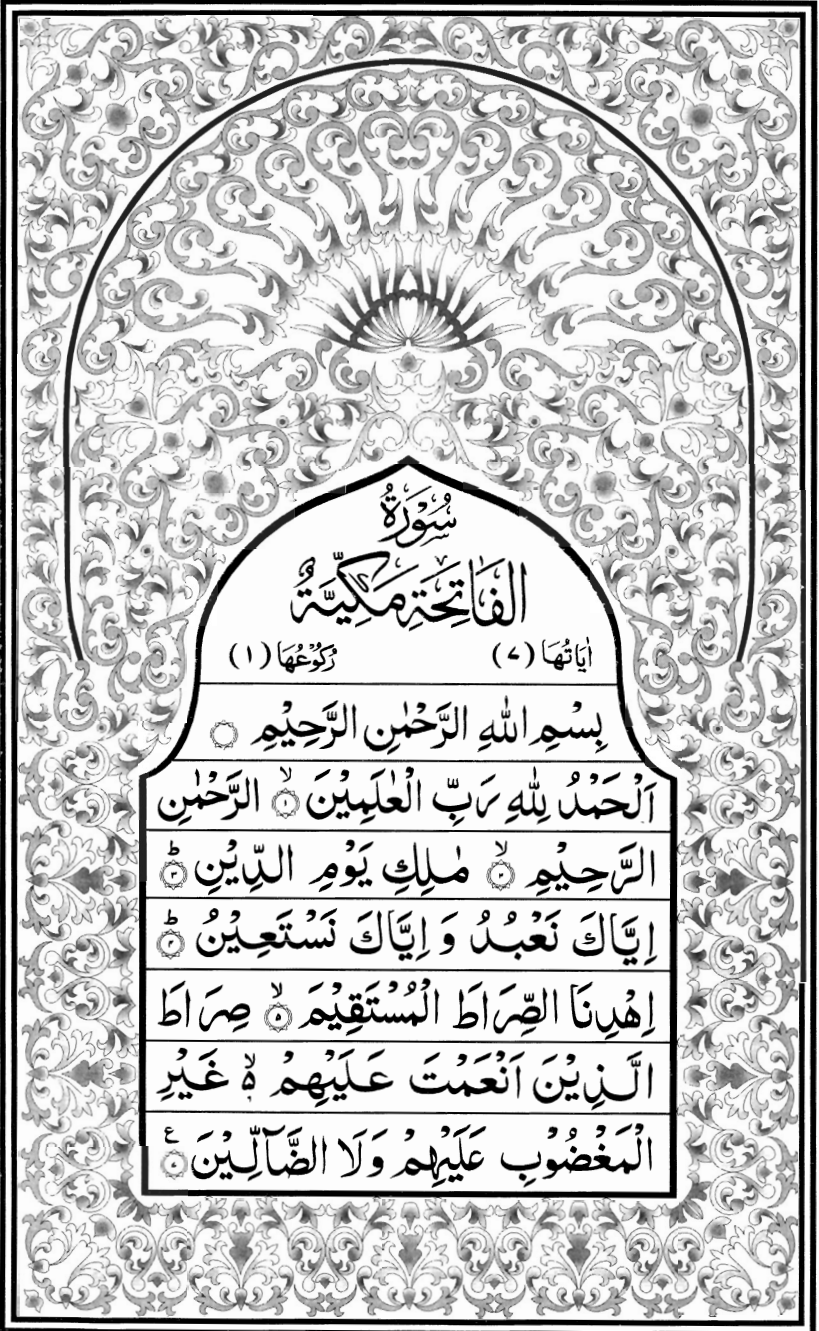 سُوْرَةُ
الْفَاتِحَةِ مَكِّيَّةٌ
اٰيَاتُهَا (٧) رُكُوْعُهَا (١)
بِسْمِ اللهِ الرَّحْمٰنِ الرَّحِيْمِ
اَلْحَمْدُ لِلّٰهِ رَبِّ الْعٰلَمِيْنَ ۙ﴿١﴾ الرَّحْمٰنِ
الرَّحِيْمِ ۙ﴿٢﴾ مٰلِكِ يَوْمِ الدِّيْنِ ؕ﴿٣﴾
اِيَّاكَ نَعْبُدُ وَ اِيَّاكَ نَسْتَعِيْنُ ؕ﴿٤﴾
اِهْدِنَا الصِّرَاطَ الْمُسْتَقِيْمَ ۙ﴿٥﴾ صِرَاطَ
الَّذِيْنَ اَنْعَمْتَ عَلَيْهِمْ ۙ۬ۥ غَيْرِ
الْمَغْضُوْبِ عَلَيْهِمْ وَلَا الضَّآلِّيْنَ ﴿٧﴾ ع